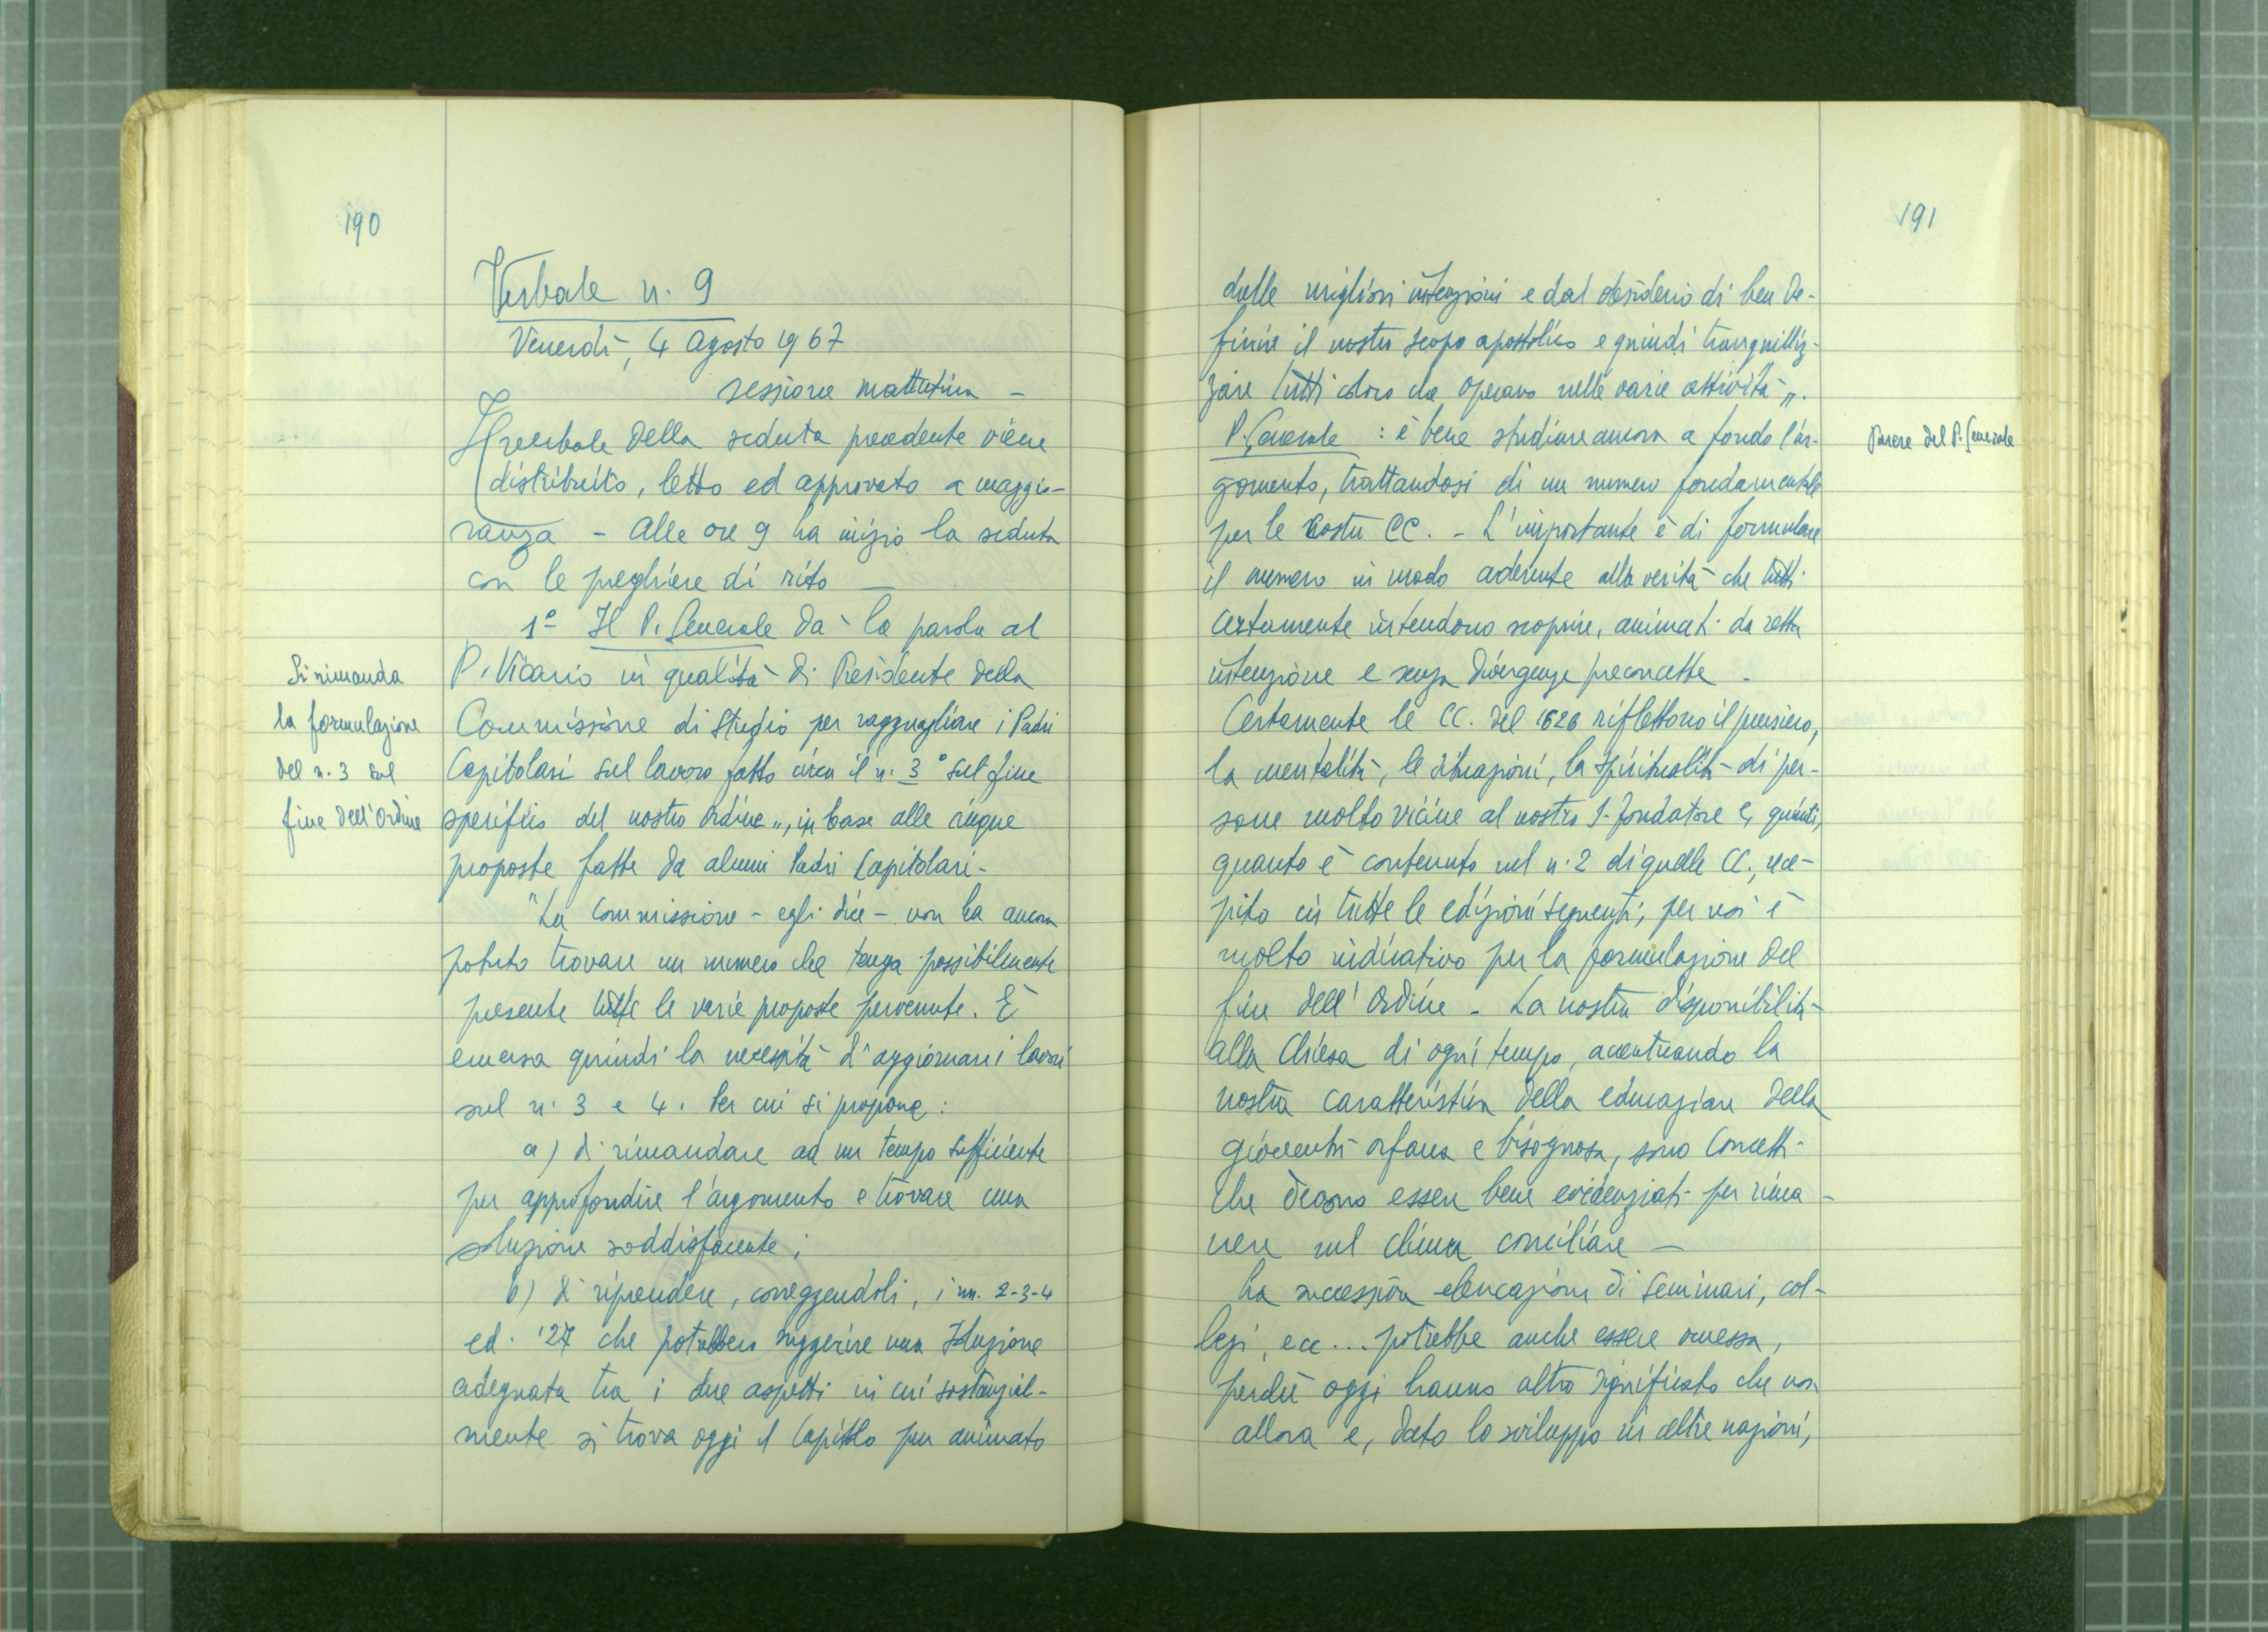 190
Verbale n. 9
Venerdì, 4 Agosto 1967
sessione mattutina -
Il verbale della seduta precedente viene
distribuito, letto ed approvato a maggio-
ranza - Alle ore 9 ha inizio la seduta
con le preghiere di rito -
1º Il P. Generale dà la parola al
P. Vicario in qualità di Presidente della
Commissione di Studio per ragguagliare i Padri
Capitolari sul lavoro fatto circa il n. 3 "sul fine
specifico del nostro Ordine", in base alle cinque
proposte fatte da alcuni Padri Capitolari -
"La Commissione - egli dice - non ha ancora
potuto trovare un numero che tenga possibilmente
presente tutte le varie proposte pervenute. È
emersa quindi la necessità d'aggiornare i lavori
sul n. 3 e 4. Per cui si propone:
a) di rimandare ad un tempo sufficiente
per approfondire l'argomento e trovare una
soluzione soddisfacente;
b) di riprendere, correggendoli, i nn. 2-3-4
ed. '27 che potrebbero suggerire una soluzione
adeguata tra i due aspetti in cui sostanzial-
mente si trova oggi il Capitolo pur animato
Si rimanda
la formulazione
del n. 3 sul
fine dell'Ordine
191
dalle migliori intenzioni e dal desiderio di ben de-
finire il nostro scopo apostolico e quindi tranquilliz-
zare tutti coloro che operano nelle varie attività".
P. Generale : è bene studiare ancora a fondo l'ar-
gomento, trattandosi di un numero fondamentale
per le nostre CC. - L'importante è di formulare
il numero in modo aderente alla verità che tutti
certamente intendono scoprire, animati da retta
intenzione e senza divergenze preconcette -
Certamente le CC. del 1626 riflettono il pensiero,
la mentalità, le situazioni, la spiritualità di per-
sone molto vicine al nostro S. Fondatore e, quindi,
quanto è contenuto nel n. 2 di quelle CC., rece-
pito in tutte le edizioni seguenti, per noi è
molto indicativo per la formulazione del
fine dell'Ordine - La nostra disponibilità
alla Chiesa di ogni tempo, accentuando la
nostra caratteristica della educazione della
gioventù orfana e bisognosa, sono concetti
che devono essere bene evidenziati per rima-
nere nel clima conciliare -
La successiva elencazione di Seminari, col-
legi, ecc... potrebbe anche essere omessa,
perché oggi hanno altro significato che non
allora e, dato lo sviluppo in altre nazioni,
Parere del P. Generale